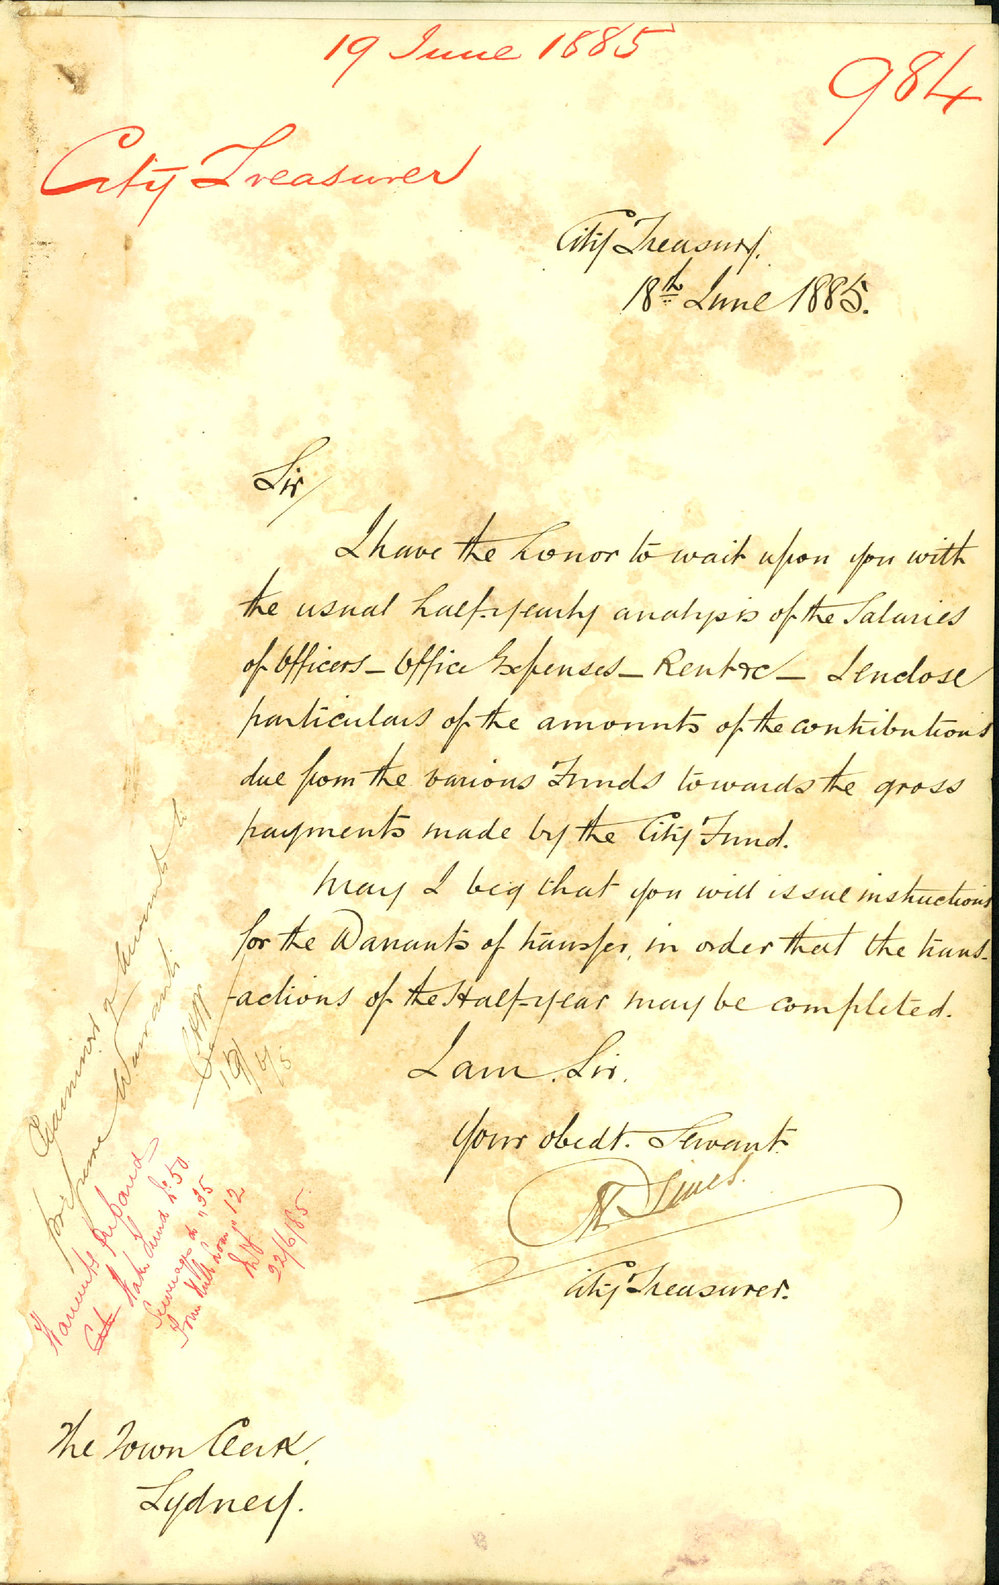 19 June 1885
984
City Treasurer
City Treasury.
18th June 1885.
Sir/
I have the honor to wait upon you with
the usual half-yearly analysis of the Salaries
of Officers – Office Expenses – Rent &c – I enclose
particulars of the amounts of the contributions
due from the various Funds towards the gross
payments made by the City Fund.
May I beg that you will issue instructions
for the Warrants of transfer, in order that the trans-
-actions of the Half-year may be completed.
I am. Sir.
Your obedt. Servant.
City Treasurer.
Examiner of Accounts to
prepare Warrants
19/6/5
Warrants prepared
Water Fund No 50
Sewerage do " 35
Town Hall Loan " 12
22/6/85
The Town Clerk.
Sydney.